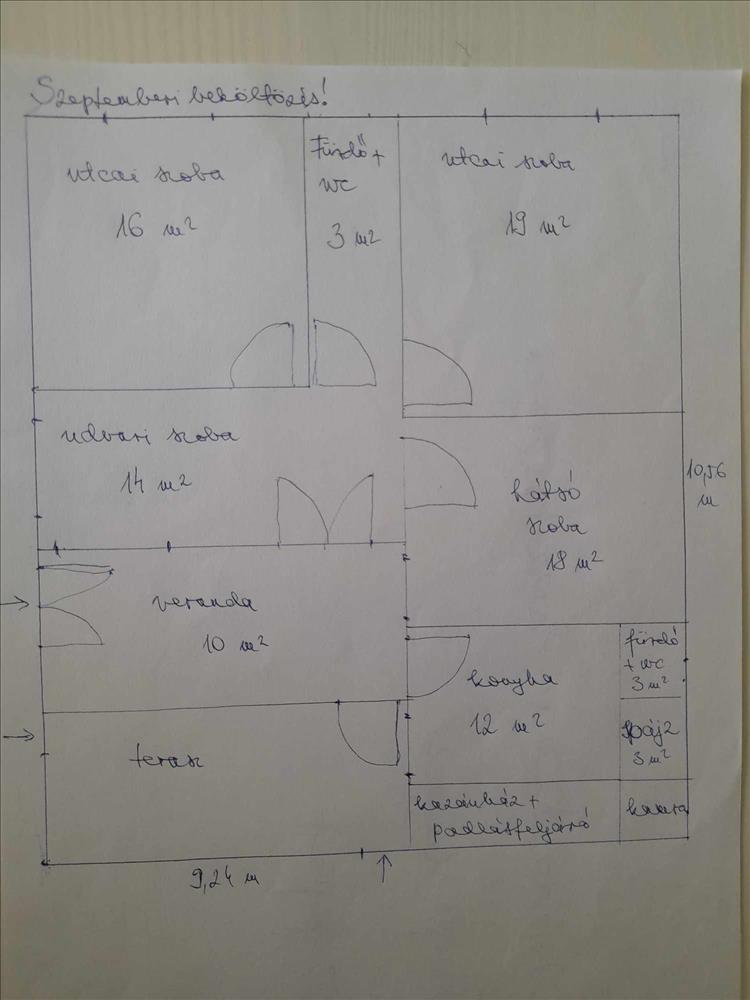 Szeptemberi beköltözés!
utcai szoba
16 m²
Fürdő +
wc
3 m²
utcai szoba
19 m²
udvari szoba
14 m²
hátsó
szoba
18 m²
10,56
m
veranda
10 m²
konyha
12 m²
fürdő
+ wc
3 m²
spájz
3 m²
terasz
kazánház +
padlásfeljáró
kamra
9,24 m